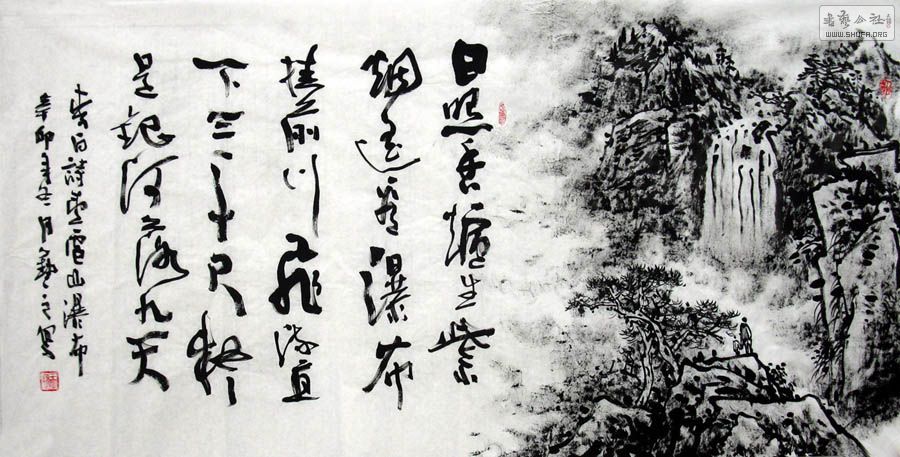 書藝公社
WWW.SHUFA.ORG
日照香爐生紫
烟遥看瀑布
挂前川飛流直
下三千尺疑
是銀河落九天
李白詩望廬山瀑布
辛卯年冬月藝之寫